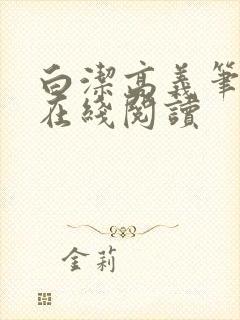 白潔高義筆
在綫閱讀
金莉